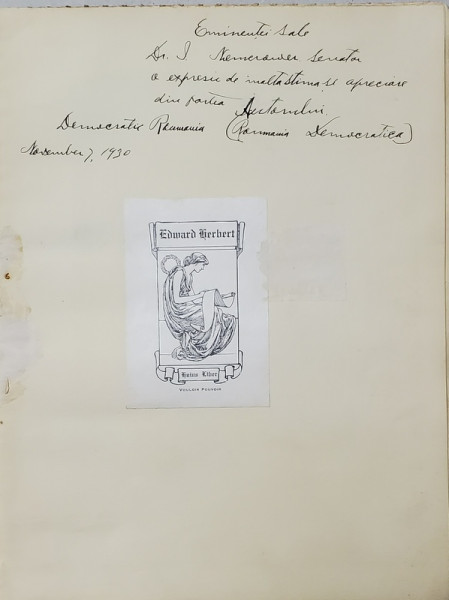 Eminentei Sale
Dr. I Nemerower Senator
o expresie de inalta stima si apreciare
din partea Autorului.
Democratic Roumania (Roumania Democratica)
November 7, 1930
Edward Herbert
Huius Liber